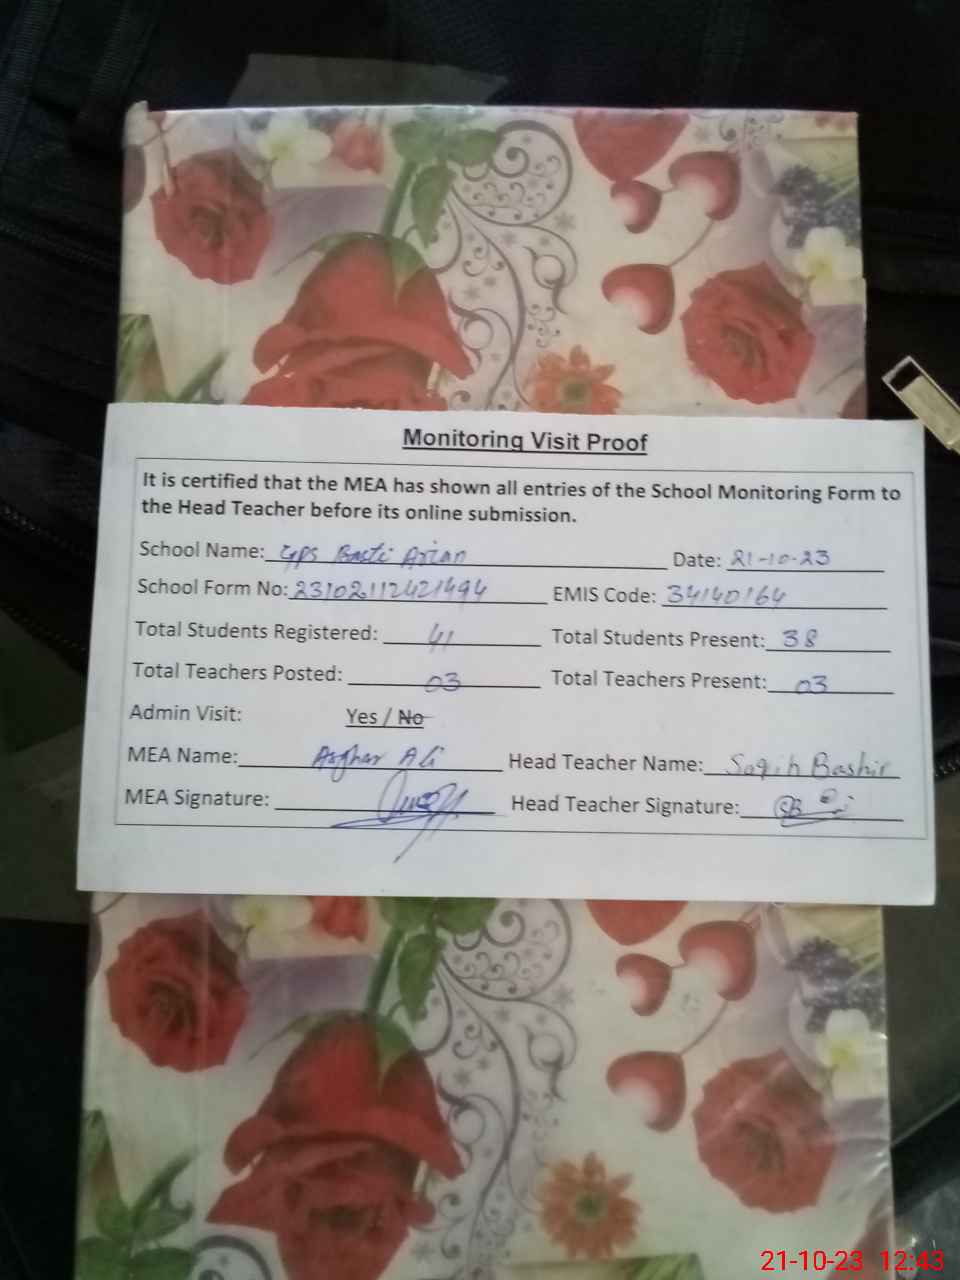 Monitoring Visit Proof
It is certified that the MEA has shown all entries of the School Monitoring Form to
the Head Teacher before its online submission.
School Name: GPS Basti Arian Date: 21-10-23
School Form No: 23102112421494 EMIS Code: 34140164
Total Students Registered: 41 Total Students Present: 38
Total Teachers Posted: 03 Total Teachers Present: 03
Admin Visit: Yes / No
MEA Name: Asghar Ali Head Teacher Name: Saqib Bashir
MEA Signature: Head Teacher Signature:
21-10-23 12:43